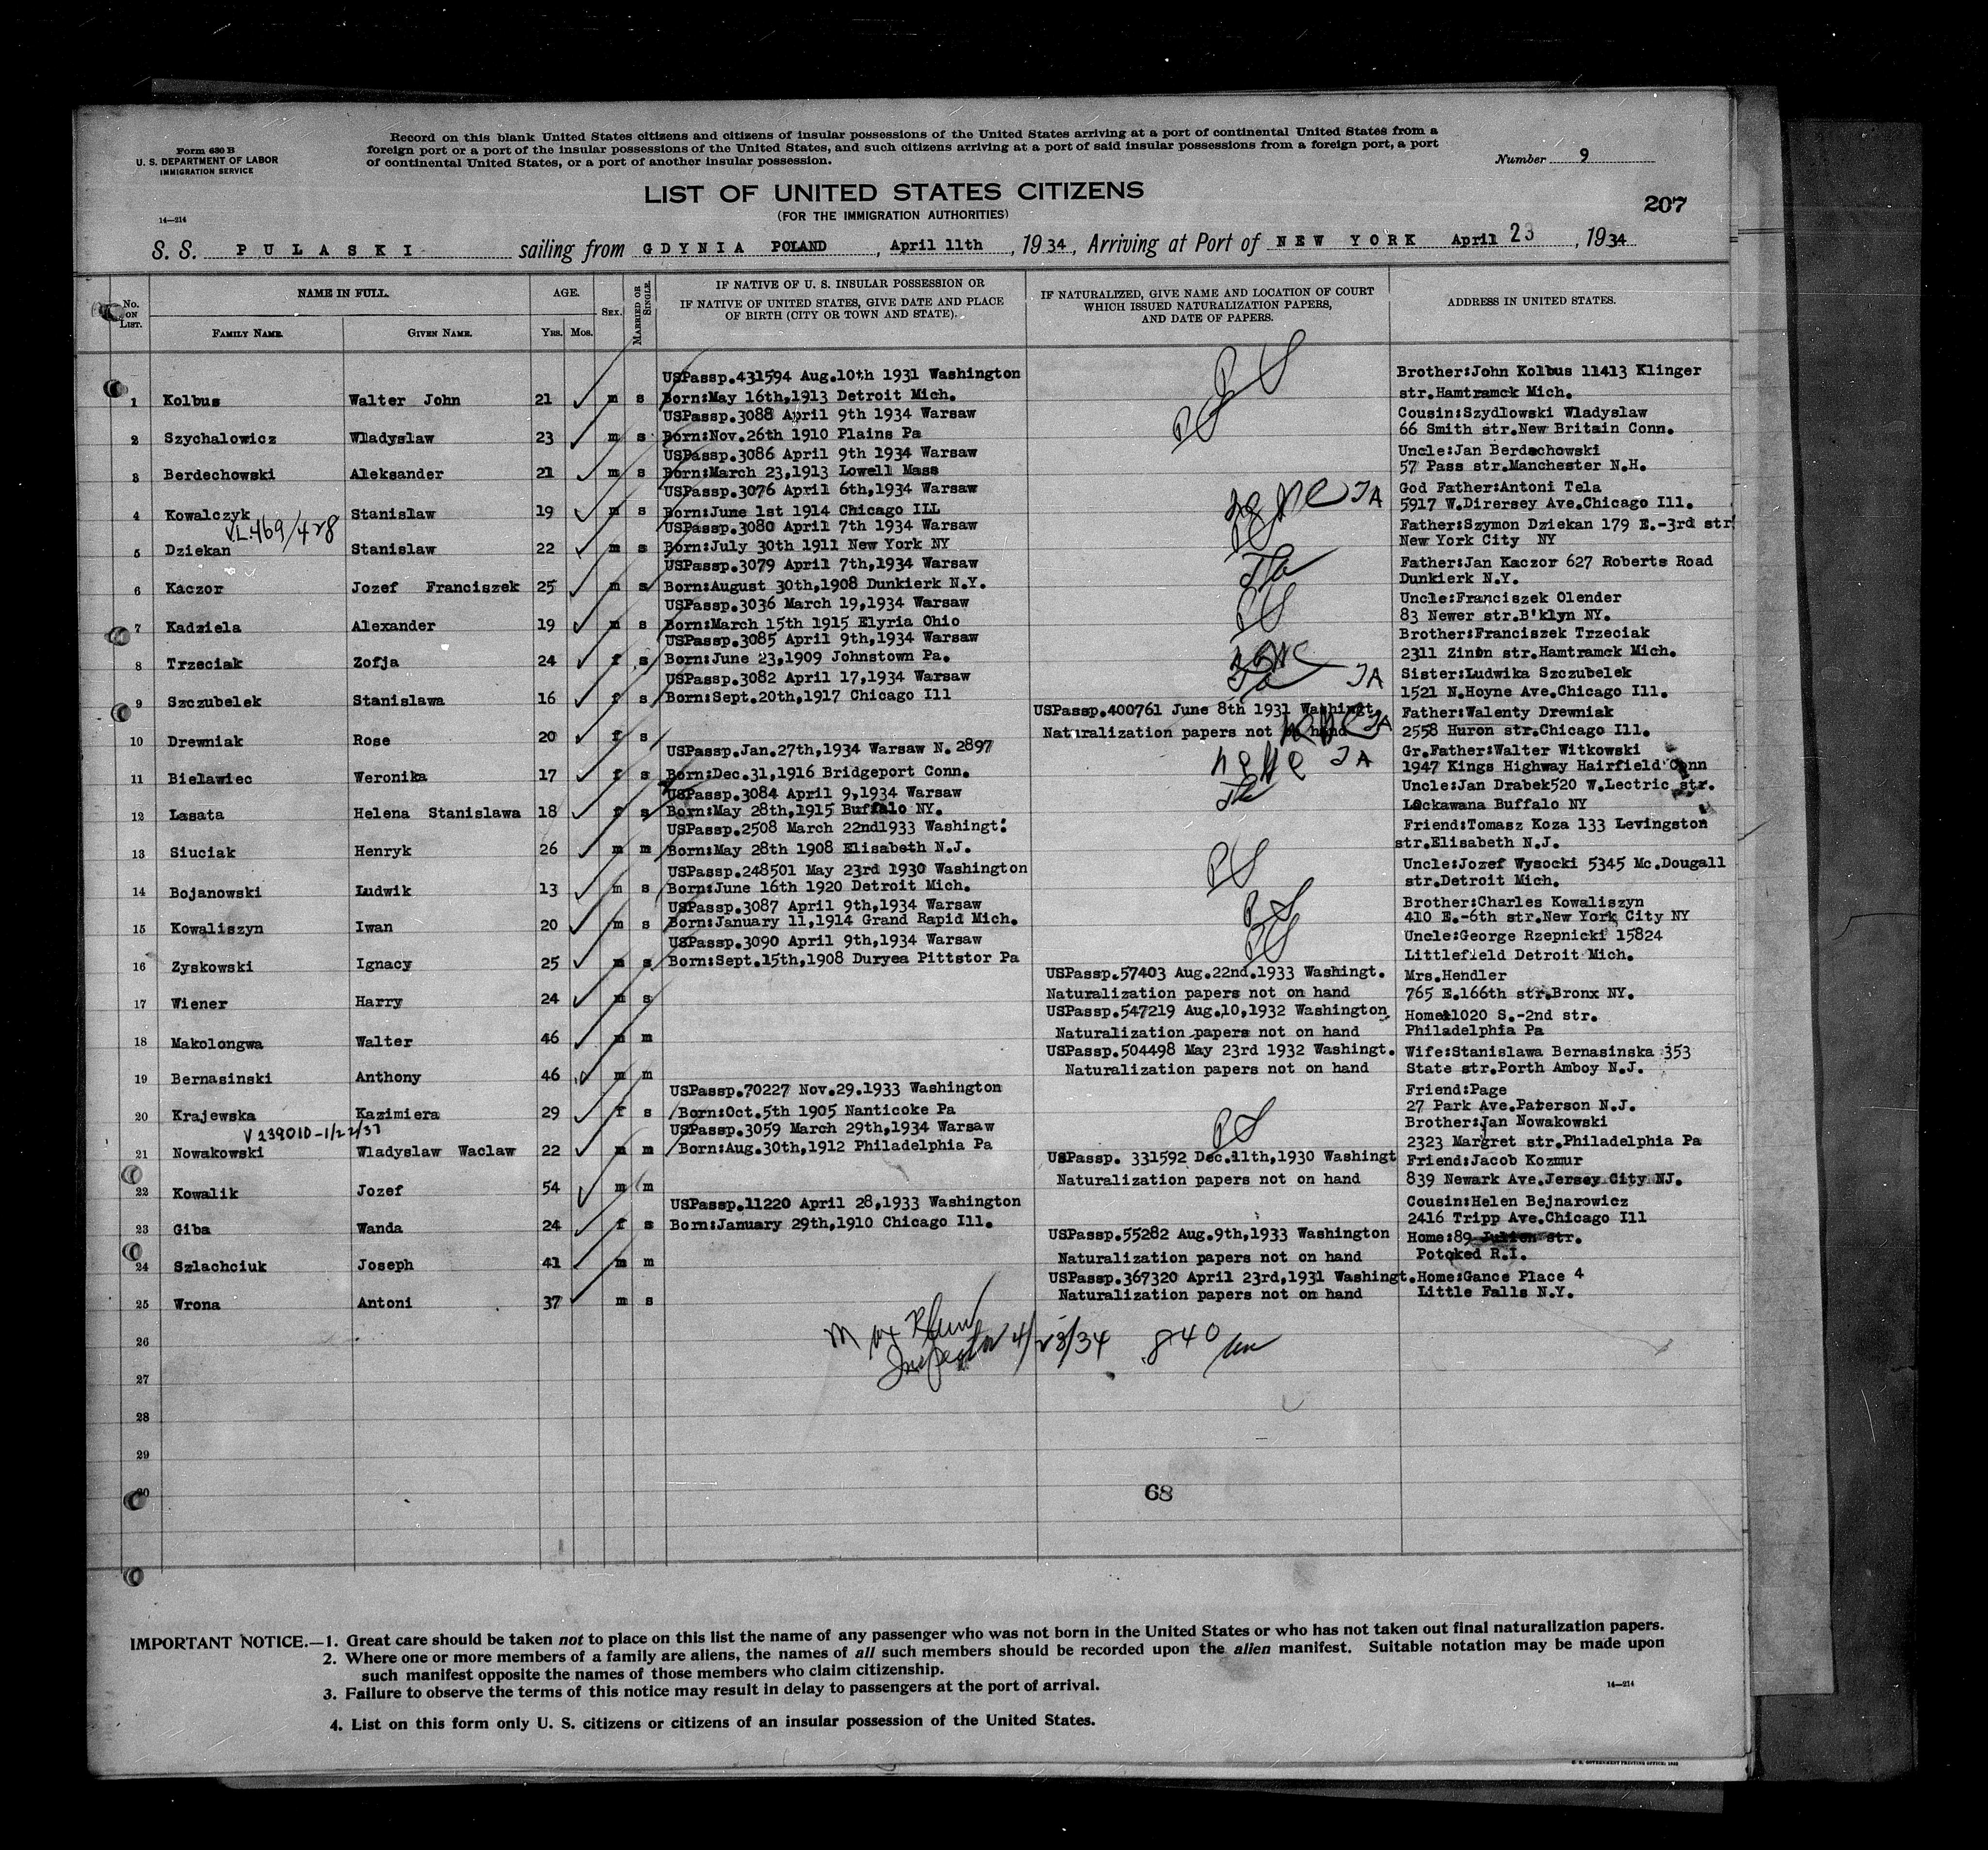 Form 630 B
U. S. DEPARTMENT OF LABOR
IMMIGRATION SERVICE
Record on this blank United States citizens and citizens of insular possessions of the United States arriving at a port of continental United States from a
foreign port or a port of the insular possessions of the United States, and such citizens arriving at a port of said insular possessions from a foreign port, a port
of continental United States, or a port of another insular possession.
Number 9
LIST OF UNITED STATES CITIZENS
(FOR THE IMMIGRATION AUTHORITIES)
207
14—214
S. S. PULASKI sailing from GDYNIA POLAND, April 11th, 1934, Arriving at Port of NEW YORK April 23, 1934
No. ON LIST.
NAME IN FULL.
FAMILY NAME. GIVEN NAME.
AGE.
YRS. MOS.
SEX.
MARRIED OR SINGLE.
IF NATIVE OF U. S. INSULAR POSSESSION OR
IF NATIVE OF UNITED STATES, GIVE DATE AND PLACE
OF BIRTH (CITY OR TOWN AND STATE).
IF NATURALIZED, GIVE NAME AND LOCATION OF COURT
WHICH ISSUED NATURALIZATION PAPERS,
AND DATE OF PAPERS.
ADDRESS IN UNITED STATES.
USPassp.431594 Aug.10th 1931 Washington Brother:John Kolbus 11413 Klinger
1 Kolbus Walter John 21 m s Born:May 16th,1913 Detroit Mich. str.Hamtramck Mich.
USPassp.3088 April 9th 1934 Warsaw Cousin:Szydlowski Wladyslaw
2 Szychalowicz Wladyslaw 23 m s Born:Nov.26th 1910 Plains Pa 66 Smith str.New Britain Conn.
USPassp.3086 April 9th 1934 Warsaw Uncle:Jan Berdechowski
3 Berdechowski Aleksander 21 m s Born:March 23,1913 Lowell Mass 57 Pass str.Manchester N.H.
USPassp.3076 April 6th,1934 Warsaw God Father:Antoni Tela
4 Kowalczyk Stanislaw 19 m s Born:June 1st 1914 Chicago ILL JA 5917 W.Dirersey Ave.Chicago Ill.
V.L.469/428 USPassp.3080 April 7th 1934 Warsaw Father:Szymon Dziekan 179 E.-3rd str
5 Dziekan Stanislaw 22 m s Born:July 30th 1911 New York NY New York City NY
USPassp.3079 April 7th,1934 Warsaw Father:Jan Kaczor 627 Roberts Road
6 Kaczor Jozef Franciszek 25 m s Born:August 30th,1908 Dunkierk N.Y. Dunkierk N.Y.
USPassp.3036 March 19,1934 Warsaw Uncle:Franciszek Olender
7 Kadziela Alexander 19 m s Born:March 15th 1915 Elyria Ohio 83 Newer str.B'klyn NY.
USPassp.3085 April 9th,1934 Warsaw Brother:Franciszek Trzeciak
8 Trzeciak Zofja 24 f s Born:June 23,1909 Johnstown Pa. 2311 Zinon str.Hamtramck Mich.
USPassp.3082 April 17,1934 Warsaw JA Sister:Ludwika Szczubelek
9 Szczubelek Stanislawa 16 f s Born:Sept.20th,1917 Chicago Ill 1521 N.Hoyne Ave.Chicago Ill.
USPassp.400761 June 8th 1931 Washingt. Father:Walenty Drewniak
10 Drewniak Rose 20 f s Naturalization papers not on hand JA 2558 Huron str.Chicago Ill.
USPassp.Jan.27th,1934 Warsaw N. 2897 JA Gr.Father:Walter Witkowski
11 Bielawiec Weronika 17 f s Born:Dec.31,1916 Bridgeport Conn. 1947 Kings Highway Hairfield Conn
USPassp.3084 April 9,1934 Warsaw Uncle:Jan Drabek520 W.Lectric str.
12 Lasata Helena Stanislawa 18 f s Born:May 28th,1915 Buffalo NY. Lackawana Buffalo NY
USPassp.2508 March 22nd1933 Washingt. Friend:Tomasz Koza 133 Levingston
13 Siuciak Henryk 26 m m Born:May 28th 1908 Elisabeth N.J. str.Elisabeth N.J.
USPassp.248501 May 23rd 1930 Washington Uncle:Jozef Wysocki 5345 Mc.Dougall
14 Bojanowski Ludwik 13 m s Born:June 16th 1920 Detroit Mich. str.Detroit Mich.
USPassp.3087 April 9th,1934 Warsaw Brother:Charles Kowaliszyn
15 Kowaliszyn Iwan 20 m s Born:January 11,1914 Grand Rapid Mich. 410 E.-6th str.New York City NY
USPassp.3090 April 9th,1934 Warsaw Uncle:George Rzepnicki 15824
16 Zyskowski Ignacy 25 m s Born:Sept.15th,1908 Duryea Pittstor Pa Littlefield Detroit Mich.
USPassp.57403 Aug.22nd.1933 Washingt. Mrs.Hendler
17 Wiener Harry 24 m s Naturalization papers not on hand 765 E.166th str.Bronx NY.
USPassp.547219 Aug.10,1932 Washington Home:1020 S.-2nd str.
18 Makolongwa Walter 46 m m Naturalization papers not on hand Philadelphia Pa
USPassp.504498 May 23rd 1932 Washingt. Wife:Stanislawa Bernasinska 353
19 Bernasinski Anthony 46 m m Naturalization papers not on hand State str.Porth Amboy N.J.
USPassp.70227 Nov.29.1933 Washington Friend:Page
20 Krajewska Kazimiera 29 f s Born:Oct.5th 1905 Nanticoke Pa 27 Park Ave.Paterson N.J.
V 239010-1/22/37 USPassp.3059 March 29th,1934 Warsaw Brother:Jan Nowakowski
21 Nowakowski Wladyslaw Waclaw 22 m m Born:Aug.30th,1912 Philadelphia Pa 2323 Margret str.Philadelphia Pa
USPassp. 331592 Dec.11th,1930 Washingt Friend:Jacob Kozmur
22 Kowalik Jozef 54 m m Naturalization papers not on hand 839 Newark Ave.Jersey City NJ.
USPassp.11220 April 28,1933 Washington Cousin:Helen Bejnarowicz
23 Giba Wanda 24 f s Born:January 29th,1910 Chicago Ill. 2416 Tripp Ave.Chicago Ill
USPassp.55282 Aug.9th,1933 Washington Home:89 Julien str.
24 Szlachciuk Joseph 41 m m Naturalization papers not on hand Potoked R.I.
USPassp.367320 April 23rd,1931 Washingt. Home:Gance Place 4
25 Wrona Antoni 37 m s Naturalization papers not on hand Little Falls N.Y.
26 Max
Inspector 4/23/34 840 am
27
28
29
30
68
IMPORTANT NOTICE.—1. Great care should be taken not to place on this list the name of any passenger who was not born in the United States or who has not taken out final naturalization papers.
2. Where one or more members of a family are aliens, the names of all such members should be recorded upon the alien manifest. Suitable notation may be made upon
such manifest opposite the names of those members who claim citizenship.
3. Failure to observe the terms of this notice may result in delay to passengers at the port of arrival.
14—214
4. List on this form only U. S. citizens or citizens of an insular possession of the United States.